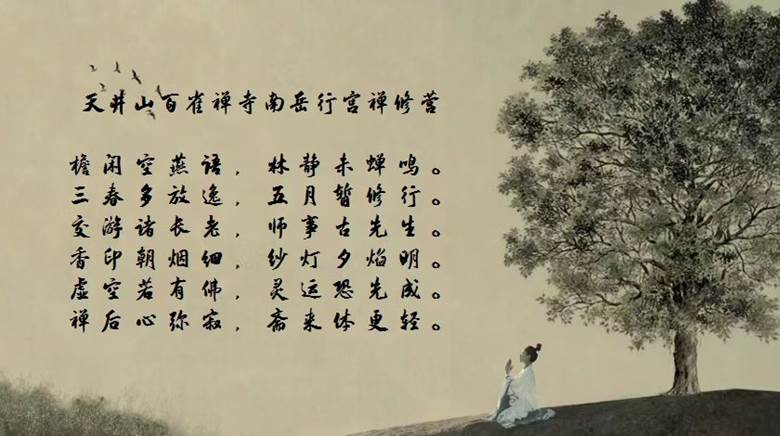 天井山百雀禅寺南岳行宫禅修营
檐闲空燕语，林静未蝉鸣。
三春多放逸，五月暂修行。
交游诸长老，师事古先生。
香印朝烟细，纱灯夕焰明。
虚空若有佛，灵运恐先成。
禅后心弥寂，斋来体更轻。